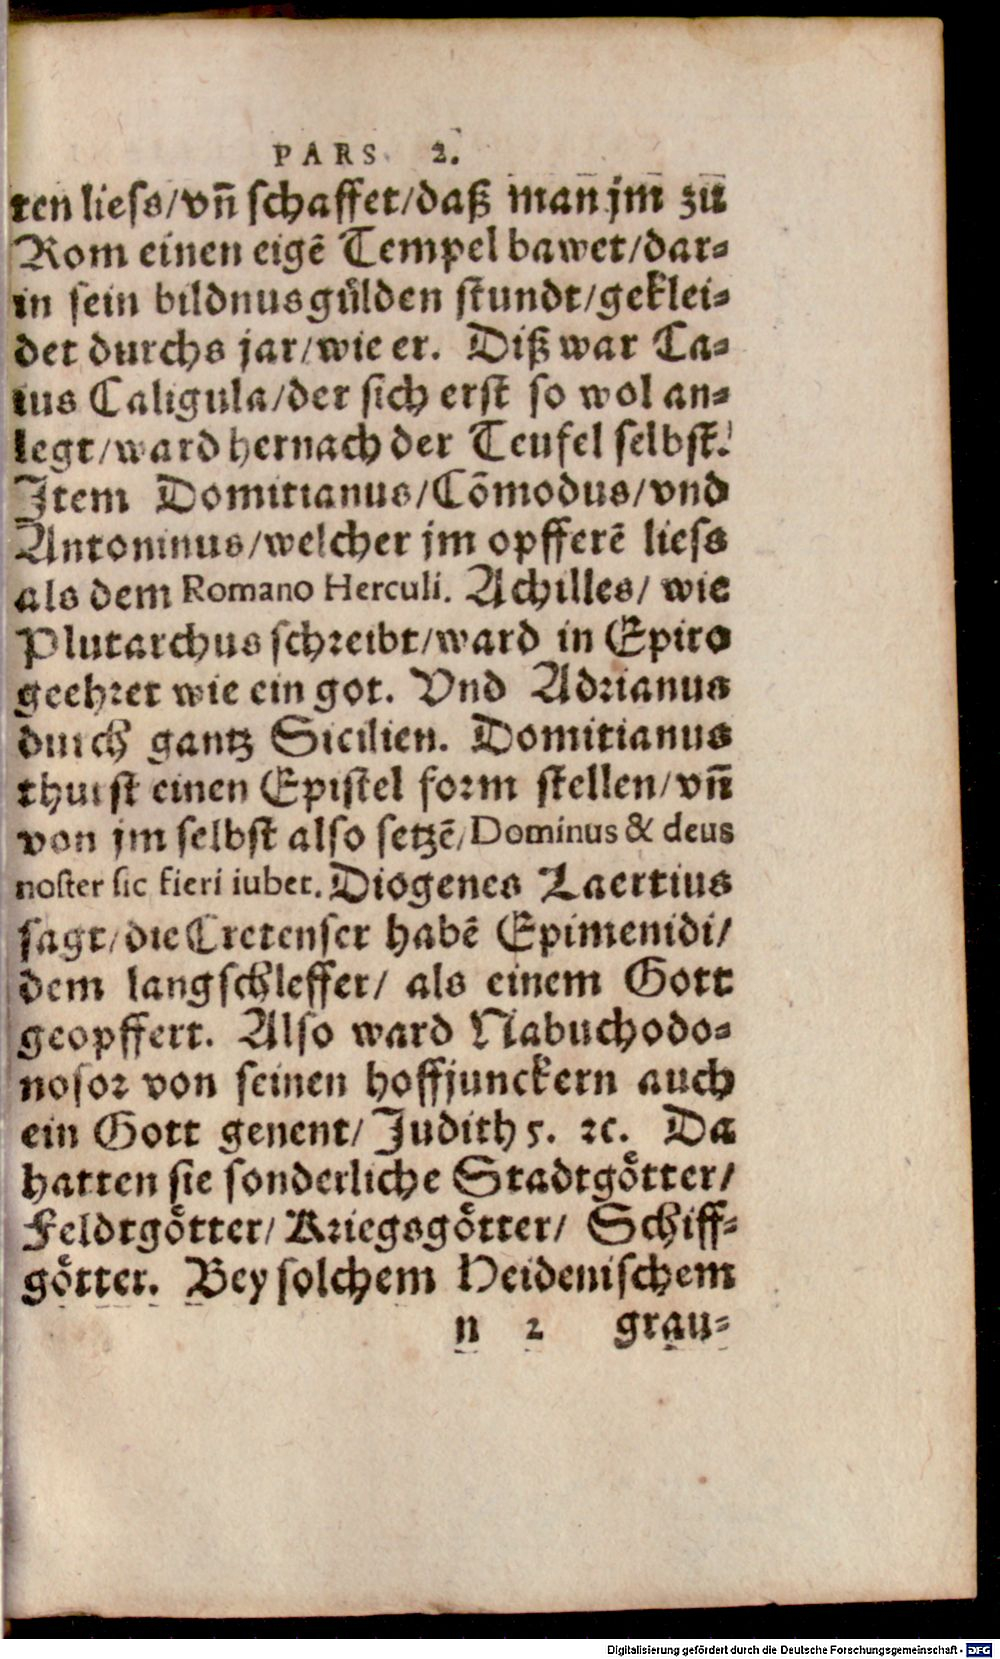 PARS 2.
ten liess/vñ schaffet/daß man jm zů
Rom einen eigē Tempel bawet/dar⸗
in sein bildnus gůlden stundt/geklei⸗
det durchs jar/wie er. Diß war Ca⸗
ius Caligula/der sich erst so wol an⸗
legt/ward hernach der Teufel selbst.
Item Domitianus/Cõmodus/vnd
Antoninus/welcher jm opfferē liess
als dem Romano Herculi. Achilles/ wie
Plutarchus schreibt/ward in Epiro
geehret wie ein got. Vnd Adrianus
durch gantz Sicilien. Domitianus
thurst einen Epistel form stellen/vñ
von jm selbst also setzē/Dominus & deus
noster sic fieri iubet. Diogenes Laertius
sagt/die Cretenser habē Epimenidi/
dem langschleffer/ als einem Gott
geopffert. Also ward Nabuchodo⸗
nosor von seinen hoffjunckern auch
ein Gott genent/ Judith 5. ꝛc. Da
hatten sie sonderliche Stadtgoͤtter/
Feldtgoͤtter/ Kriegsgoͤtter/ Schiff⸗
goͤtter. Bey solchem Heidenischem
n 2 grau⸗
Digitalisierung gefördert durch die Deutsche Forschungsgemeinschaft - DFG